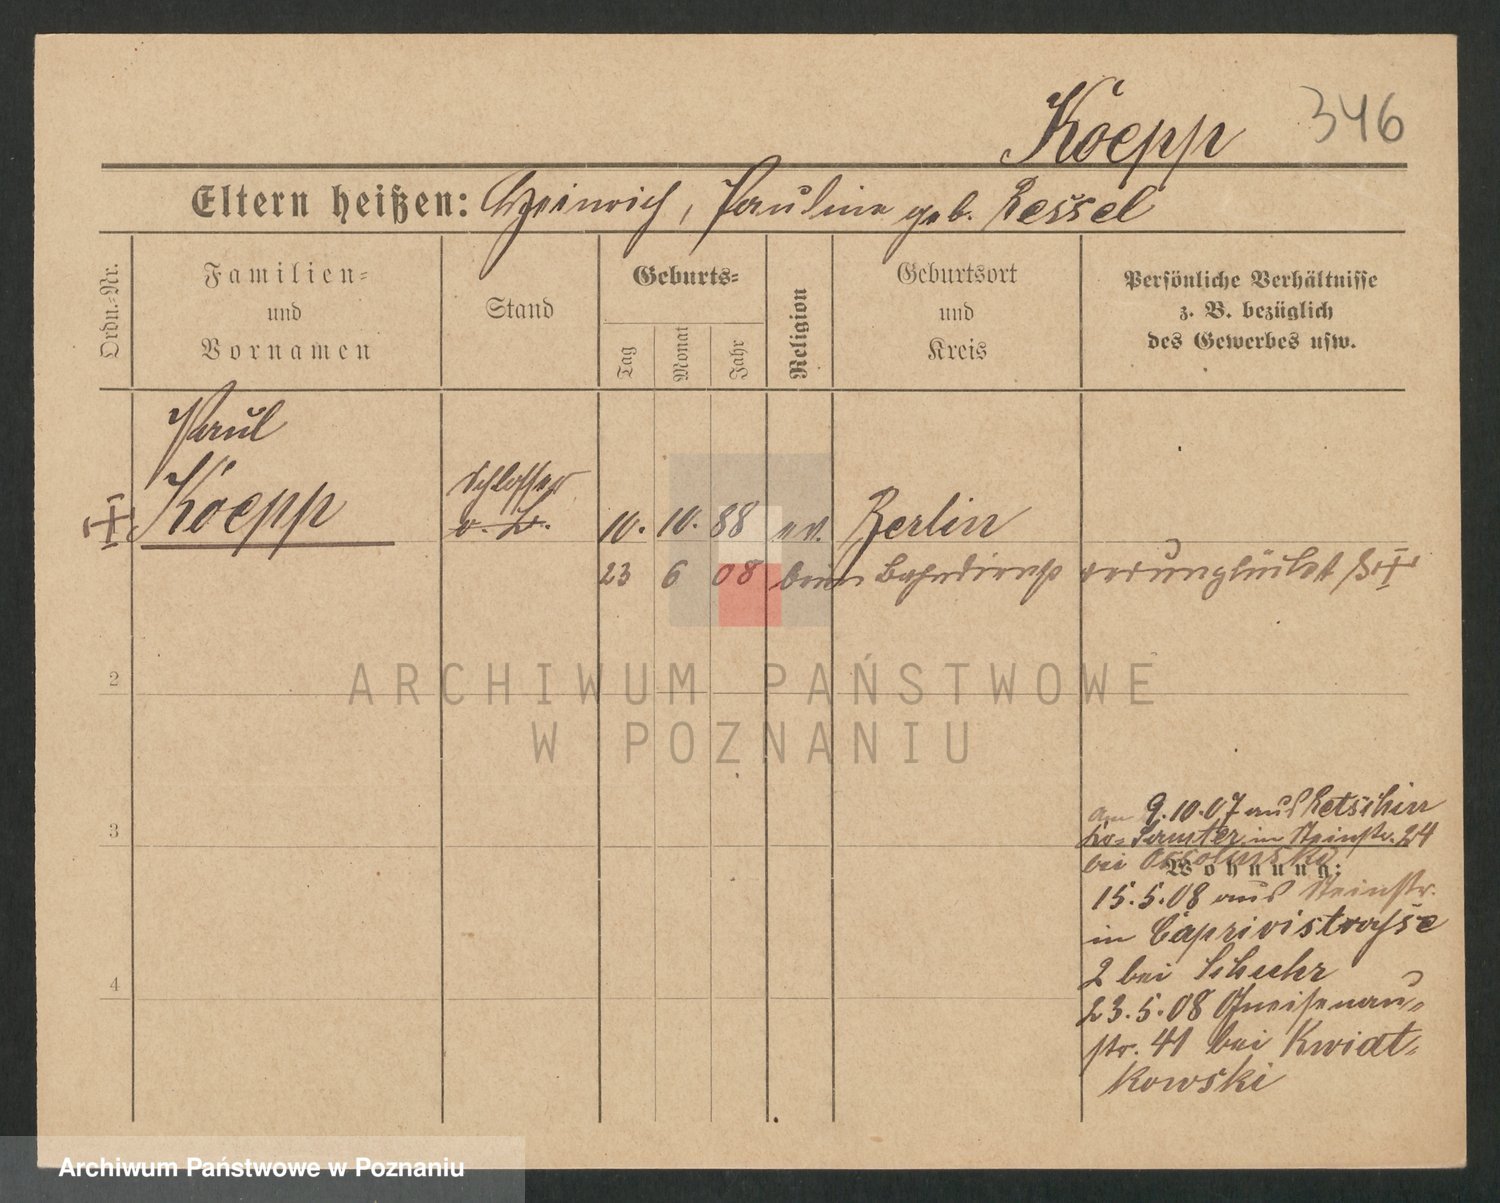 Koepp 346
Eltern heißen: Heinrich, Pauline geb. Ressel
Ordn.-Nr.
Familien-
und
Vornamen
Stand
Geburts-
Tag
Monat
Jahr
Religion
Geburtsort
und
Kreis
Persönliche Verhältnisse
z. B. bezüglich
des Gewerbes usw.
Paul
Koepp
Schlosser
o. L.
10. 10. 88 ev. Berlin
23 6 08 beim Bahndienst verunglückt
ARCHIWUM PAŃSTWOWE
W POZNANIU
2
3
4
am 9.10.07 aus Retschin
Kr. Samter in Steinstr. 24
bei
Wohnung:
15.5.08 aus Steinstr.
in Caprivistraße
2 bei Schuhr
23.5.08 Gneisenau-
str. 41 bei Kwiat-
kowski
Archiwum Państwowe w Poznaniu